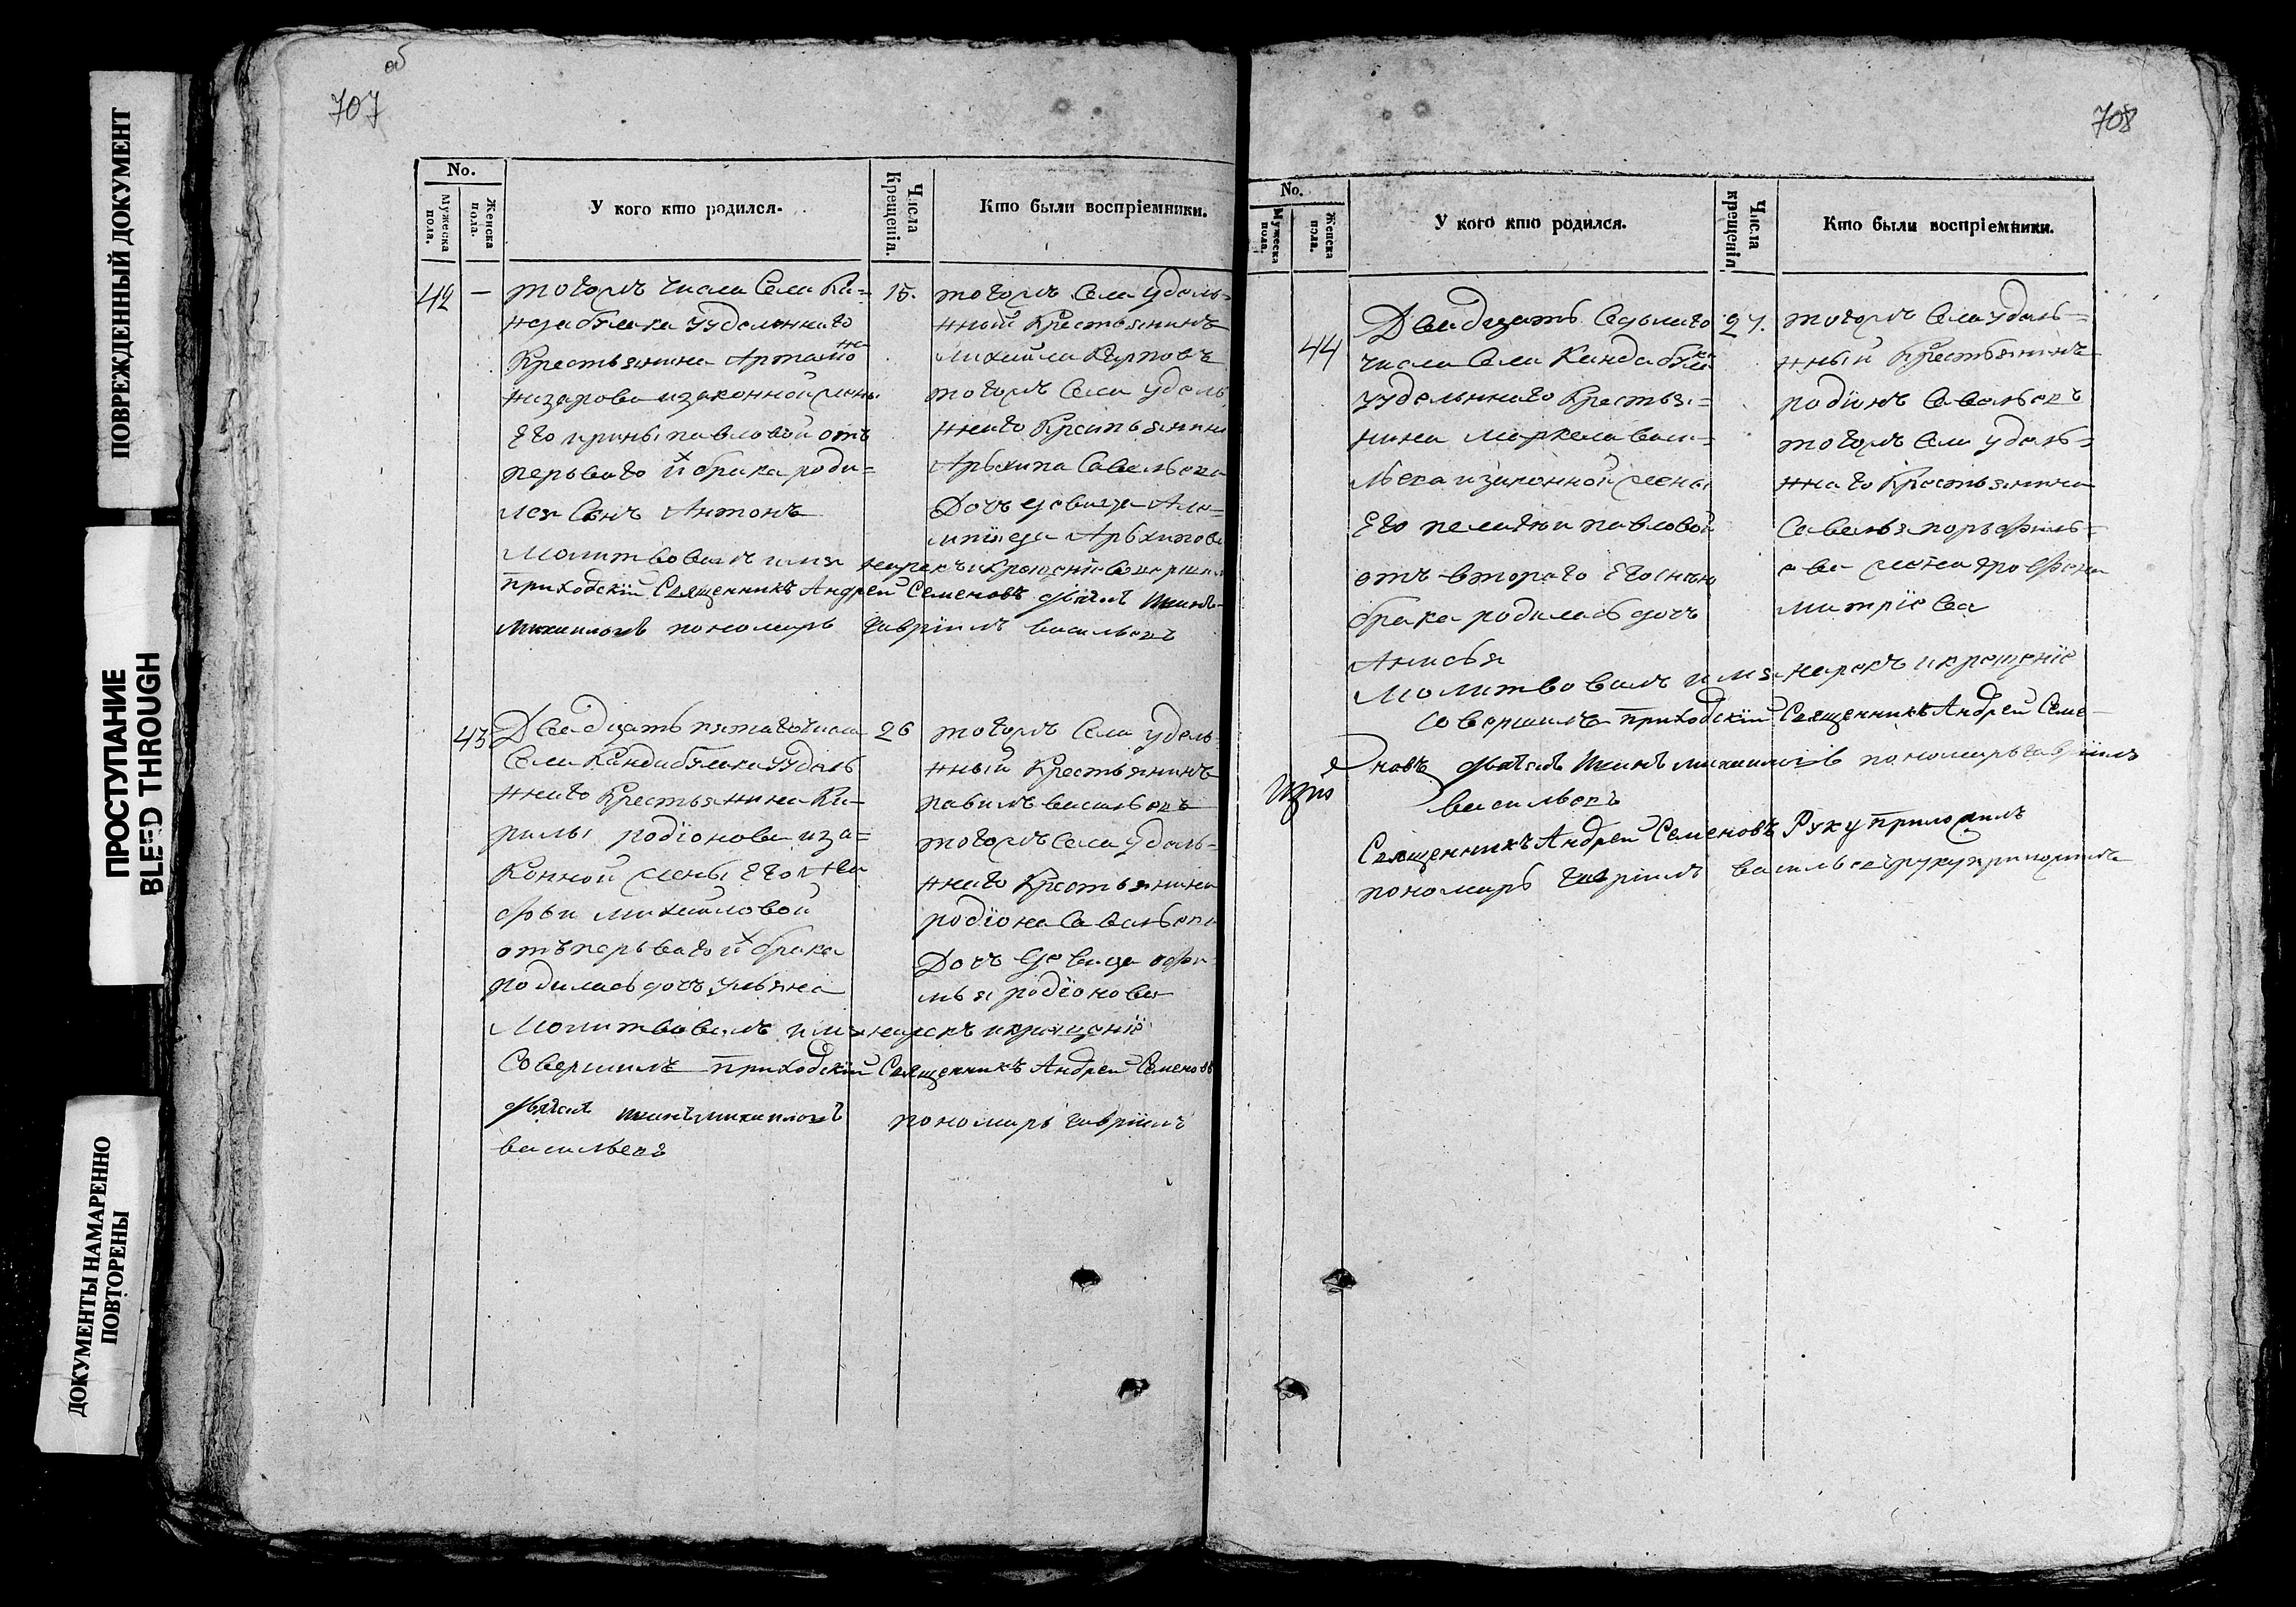 ПОВРЕЖДЕННЫЙ ДОКУМЕНТ
ПРОСТУПАНИЕ
BLEED THROUGH
ДОКУМЕНТЫ НАМАРЕННО
ПОВТОРЕНЫ
об
707
No.
Мужеска пола.
Женска пола.
У кого кто родился.
Числа Крещенія.
Кто были воспріемники.
42 — тогожъ числа Села Кан=
дабулака удельнаго
Крестьянина Артамона
назарова изаконной жены
Его ирины павловой отъ
перьваго ихъ брака роди=
лся Сынъ Антонъ
15. тогожъ Села удель=
ный Крестьянинъ
михаила Карповъ
тогожъ Села удель
наго Крестьянина
Арьхипа Савельева
Дочь девица
Арьхипова
Молитвовалъ имя нарекъ и крещение совершилъ
приходскій Священникъ Андрей Семеновъ дьячекъ
михаиловъ пономарь гавріилъ васильевъ
43 Двадцать пятаго числа
Села Кандабулака удель
наго Крестьянина Ки=
рилы родіонова иза=
Конной жены Его
михаиловой
отъ перьваго ихъ брака
родилась дочь ульяна
26 тогожъ Села удель
ный Крестьянинъ
павилъ васильевъ
тогожъ Села удель=
наго Крестьянина
родіона Савельева
Дочь девица
родіонова
Молитвовалъ имя нарекъ и крещеніе
Совершилъ приходскій Священникъ Андрей Семеновъ
дьячекъ михаиловъ пономарь гавріилъ
васильевъ
708
No.
Мужеска пола.
Женска пола.
У кого кто родился.
Числа крещенія
Кто были воспріемники.
44 Двадцать Седьмаго
числа Села Кандабулака
удельнаго Крестья=
нина маркела васи=
льева изаконной жены
Его пелагеи павловой
отъ втораго Его
брака родилась дочь
Анисья
27. тогожъ Села удель=
ный Крестьянинъ
родіонъ Савельевъ
тогожъ Села удель=
наго Крестьянина
Савелья порьфирь=
ева жена
митріева
Молитвовалъ имя нарекъ и крещеніе
совершилъ приходскій Священникъ Андрей Семе-
новъ дьячекъ михаиловъ пономарь гавріилъ
васильевъ
Священникъ Андрей Семеновъ Руку приложилъ
пономарь гавріилъ васильевъ руку приложилъ